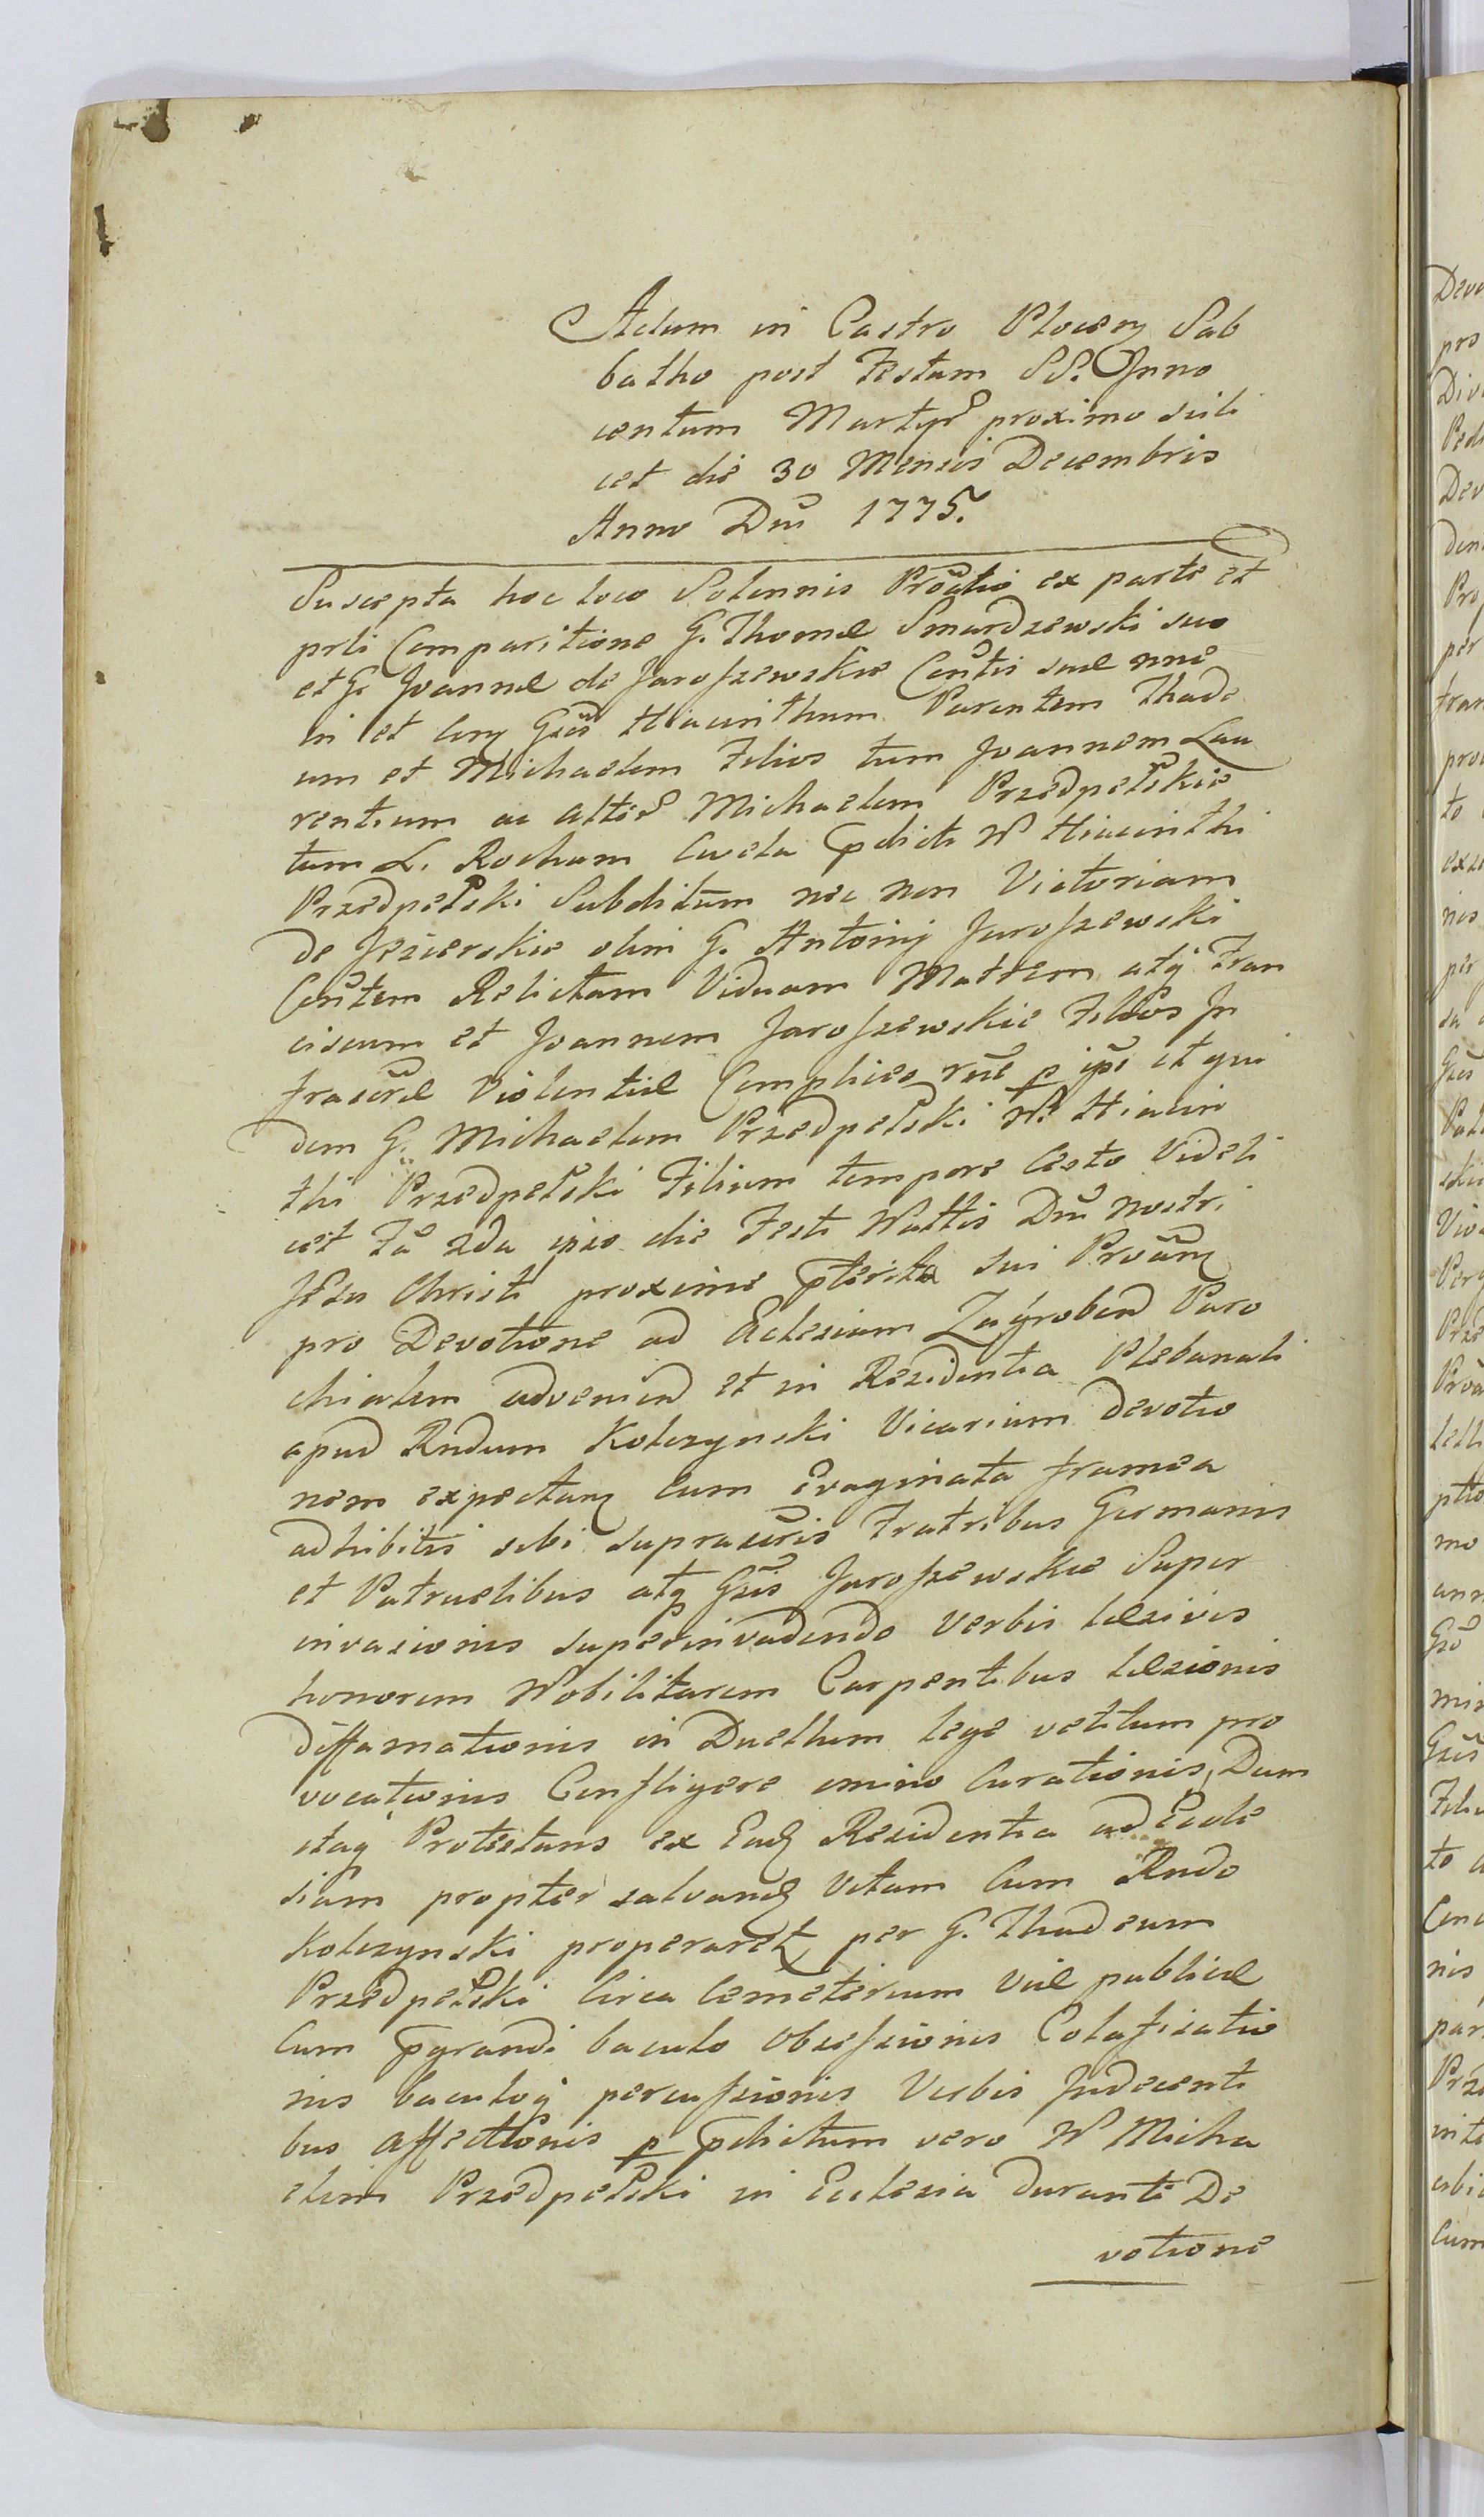 Actum in Castro Plocen Sab
batho post Festum SS. Inno
centum Martyr proximo scili
cet die 30 Mensis Decembris
Anno Dni 1775.
Suscepta hoc loco Solennis Prõtãtio ex parte et
prli Comparitione G. Thomæ Smardzewski suo
et G. Joannæ de Jaroszewskie Contis suæ nne
in et con Gsos Hiacinthum Parentem Thade
um et Michaelem Filios tum Joannem Lau
rentium ac alter Michaelem Przedpełskie
tum L. Rochum Cwela pdicti N Hiacinthi
Przedpełski Subditum nec non Victoriam
de Jezierskie olim G. Antonij Jaroszewski
Contem Relictam Viduam Matrem atq Fran
ciscum et Joannem Jaroszewskie Filios In
frascræ Violentiæ Complices rñe p ipõ et qui
dem G. Michaelem Przedpełski N. Hiacin
thi Przedpełski Filium tempore Certo Videli
cet Fã 2da ipso die Festi Nattis Dni Nostri
JEsu Christi proxime pterita sui Prõãn
pro Devotione ad Eclesiam Zagroben Paro
chialem advenien et in Residentia Plebanali
apud Rndum Kolczynski Vicarium devotio
nem expectan Cum Evaginata framea
adhibitis sibi suprascris Fratribus Germanis
et Patruelibus atq Gsis Jaroszewskie Super
invasionis superinvadendo Verbis læsivis
honorem Nobilitarem Carpentibus læsionis
diffamationis in Duellum lege vetitum pro
vocationis Confligere omino Curationis, Dum
itaq Protestans ex Ead Residentia ad Eccle
siam propter salvand Vitam Cum Rndo
Kolczynski properaret per G. Thadeum
Przedpełski Circa Cemeterium Viæ publicæ
Cum pgrandi baculo Obsessionis Colafisatio
nis baculoq percussionis Verbis Indecenti
bus affectionis p pdictum vero N Micha
elem Przedpełski in Ecclesia duranti De
votione